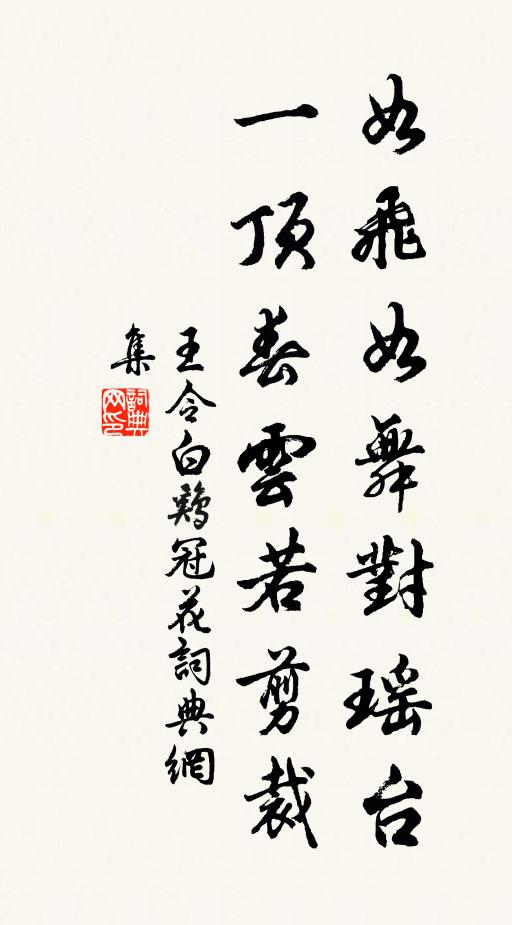 如飛如舞對瑶台
一顶春雲若剪裁
王令白鷄冠花詞典網
集
詞典
网印